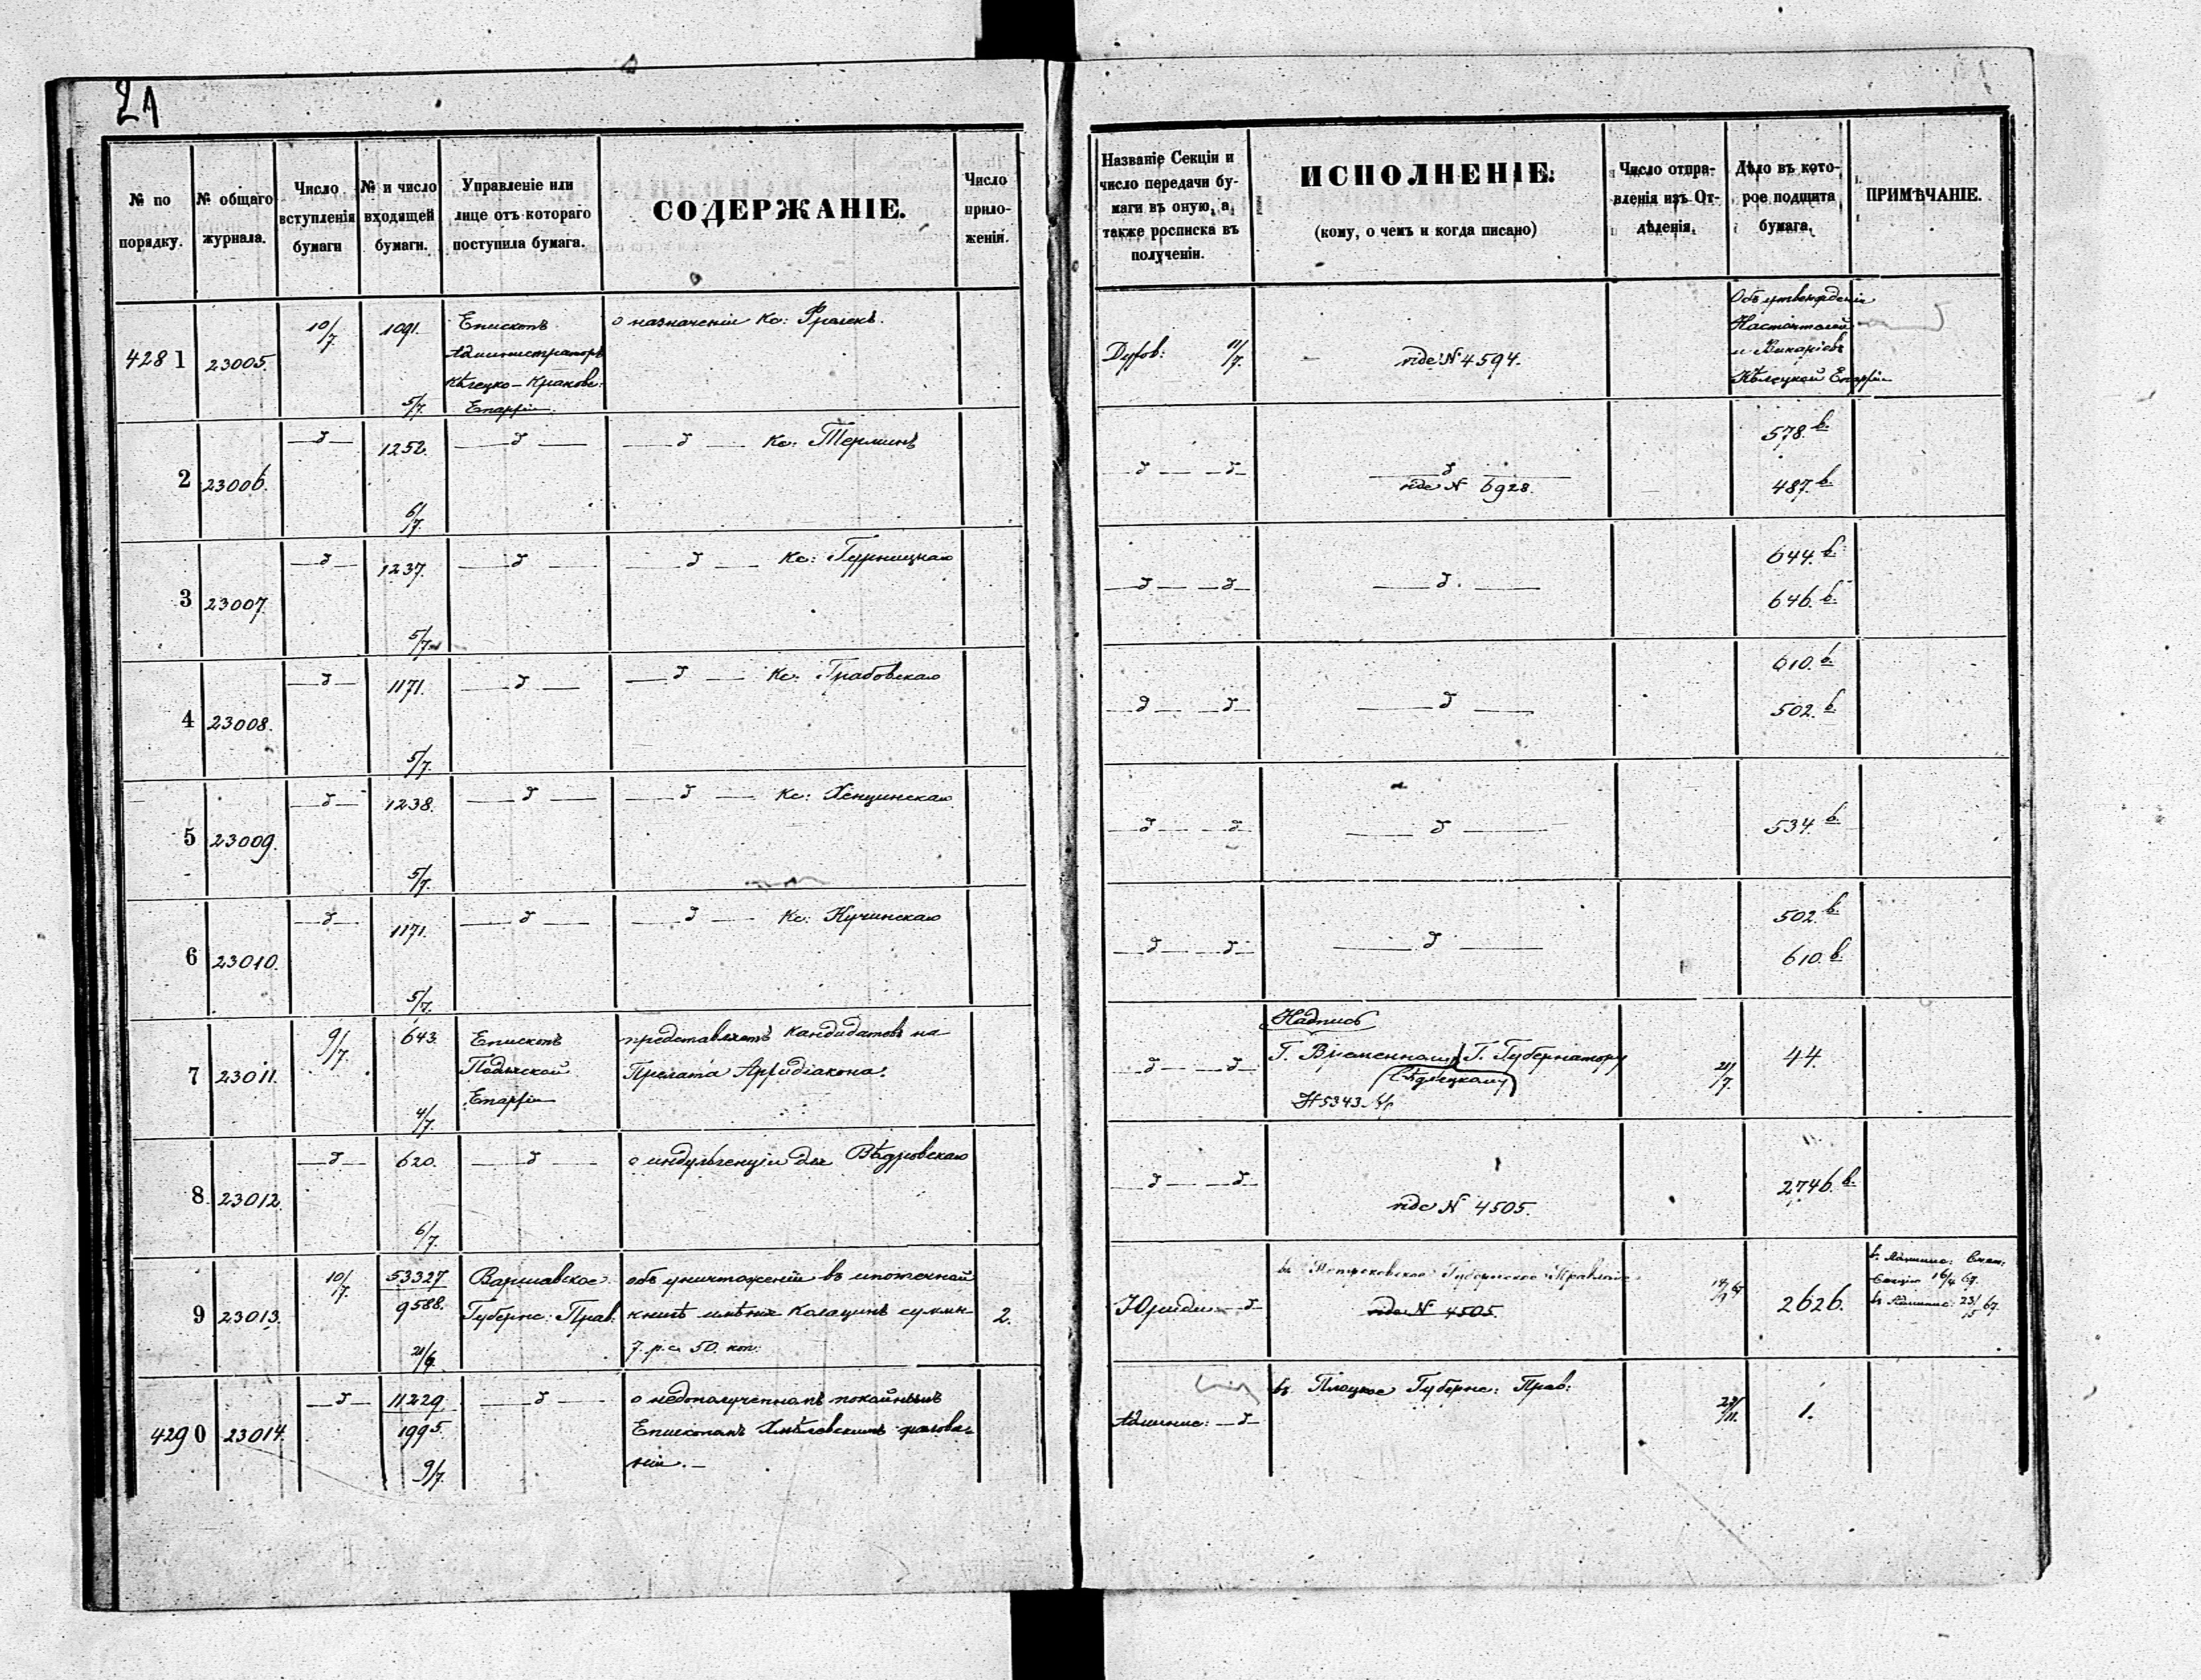 21
№ по порядку.
№ общаго журнала.
Число вступленія бумаги
№ и число входящей бумаги.
Управленіе или лице отъ котораго поступила бумага.
СОДЕРЖАНІЕ.
Число приложеній.
Названіе Секціи и число передачи бумаги въ оную, а также росписка въ полученіи.
ИСПОЛНЕНІЕ.
(кому, о чемъ и когда писано)
Число отправленія изъ Отдѣленія.
Дѣло въ которое подшита бумага.
ПРИМѢЧАНІЕ.
4281 23005. 10/7. 1091. 5/7.
Епископъ
Администраторъ
Кѣлецко-Краковс:
Епархіи
о назначеніи Кс: Фралекъ.
Духов: 11/7.
vide N 4594.
Объ утвержденіи
Настоятелей
и Викаріевъ
Кѣлецкой Епархіи
2 23006. —д— 1252. 6/7. —д— —д— Кс: Терминъ
—д— —д—
—д—
vide N 6928.
578. b.
487. b.
3 23007. —д— 1237. 5/7. —д— —д— Кс: Гурницкаго
—д— —д— —д—
644. b.
646. b.
4 23008. —д— 1171. 5/7. —д— —д— Кс: Грабовскаго
—д— —д— —д—
610. b.
502. b.
5 23009. —д— 1238. 5/7. —д— —д— Кс: Хенцинскаго
—д— —д— —д—
534. b.
6 23010. —д— 1171. 5/7. —д— —д— Кс: Кучинскаго
—д— —д— —д—
502. b.
610. b.
7 23011. 9/7. 643. 4/7.
Епископъ
Подляской
Епархіи
представляетъ кандидатовъ на
Прелата Архидіакона.
—д— —д—
Надпись
Г. Временному Г. Губернатору
Сѣдлецкому
N 5343.
21/7. 44.
8. 23012. —д— 620. 6/7. —д—
о индульгенціи для
—д— —д—
vide N 4505.
2746. b.
9 23013. 10/7. 53327/9588. 21/6.
Варшавское
Губернс: Прав:
объ уничтоженіи въ ипотечной
книгѣ имѣнія Колацинъ суммы
7. р.с. 50. коп.
2.
Юриди —д—
въ Петроковское Губернское Правленіе
vide N 4505.
2626.
4290 23014. —д— 11229./1995. 9/7. —д—
о недополученномъ покойнымъ
Епископомъ Хмѣлевскимъ жалова-
ніи.—
Админис: —д—
въ Плоцкое Губернс: Прав:
1.